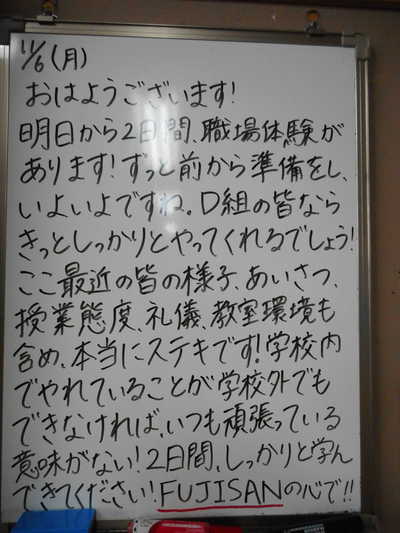 11/6(月)
おはようございます!
明日から2日間、職場体験が
あります!ずっと前から準備をし、
いよいよですね。D組の皆なら
きっとしっかりとやってくれるでしょう!
ここ最近の皆の様子、あいさつ、
授業態度、礼儀、教室環境も
含め、本当にステキです!学校内
でやれていることが学校外でも
できなければ、いつも頑張っている
意味がない!2日間、しっかりと学ん
できてください!FUJISANの心で!!